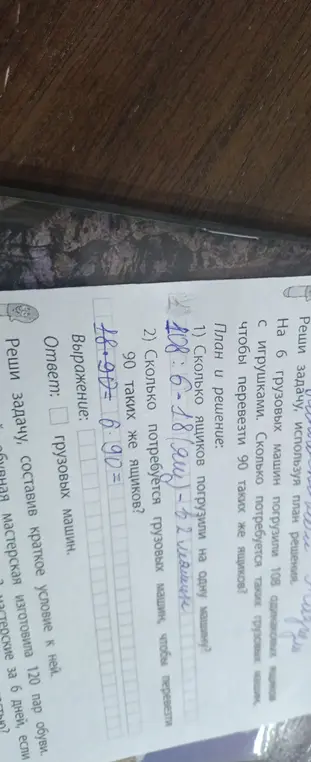 Реши задачу, используя план решения.
На 6 грузовых машин погрузили 108 одинаковых ящиков
с игрушками. Сколько потребуется таких грузовых машин,
чтобы перевезти 90 таких же ящиков?
План и решение:
1) Сколько ящиков погрузили на одну машину?
108 : 6 = 18 (ящ) - в
2) Сколько потребуется грузовых машин, чтобы перевезти
90 таких же ящиков?
18 • 90 = 6 90 =
Выражение:
Ответ: грузовых машин.
Реши задачу, составив краткое условие к ней.
мастерская изготовила 120 пар обуви.
мастерские за 6 дней, если